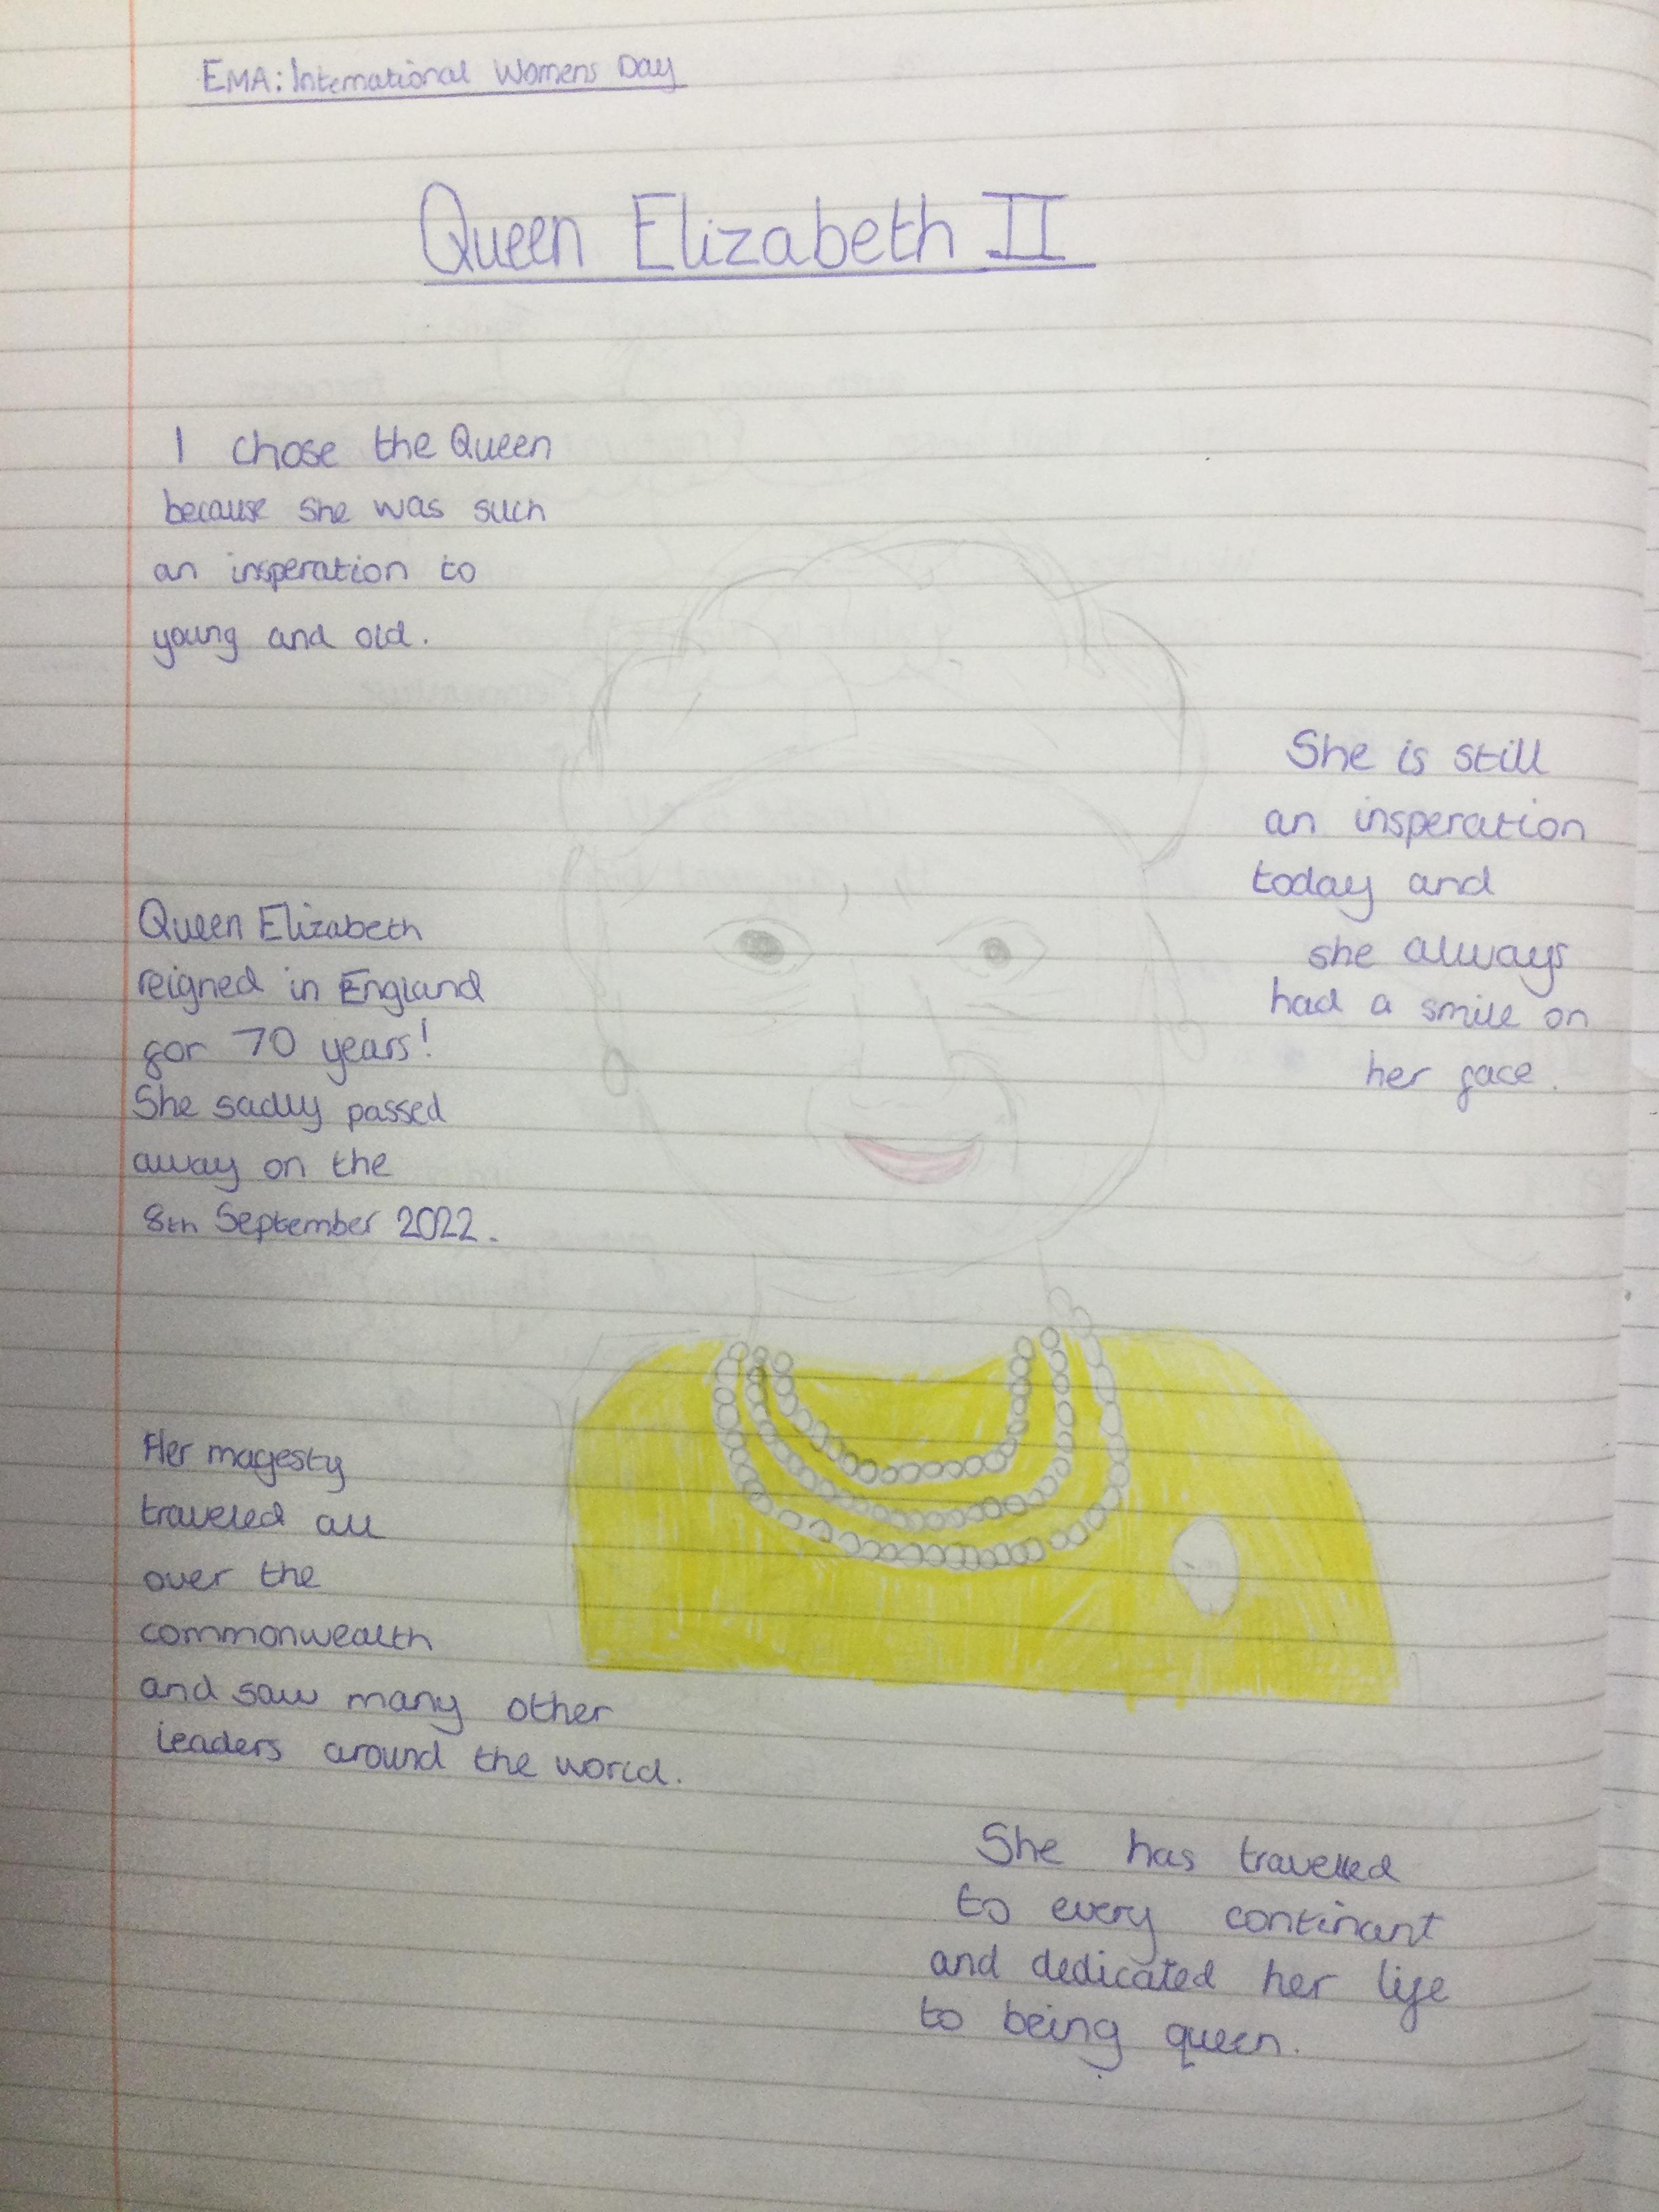 EMA: International Womens Day
Queen Elizabeth II
I chose the Queen
because she was such
an insperation to
young and old.
She is still
an insperation
today and
she always
had a smile on
her face.
Queen Elizabeth
reigned in England
for 70 years!
She sadly passed
away on the
8th September 2022.
Her magesty
traveled all
over the
commonwealth
and saw many other
leaders around the world.
She has travelled
to every continant
and dedicated her life
to being queen.